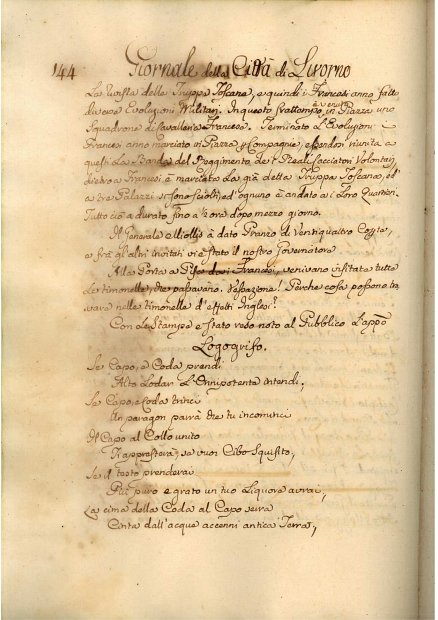 144 Giornale della Città di Livorno
La Rivista della Truppa Toscana, e quindi i Francesi anno fatto
diverse Evoluzioni Militari. In questo frattempo è venuto in Piazza uno
Squadrone di Cavalleria Francese. Terminato l'Evoluzioni i
Francesi anno marciato in Piazza e Compagnie, essendosi riunita a
questi La Banda del Reggimento de' Reali Cacciatori Volontari,
dietro a Francesi è marciata La già detta Truppa Toscana, ed
a tre Palazzi si sono sciolti, ed'ognuno è andato a i Loro Quartieri.
Tutto ciò a durato fino a ½ ora dopo mezzo giorno.
Il Generale Miollis à dato Pranzo di Ventiquattro Coperte,
e frà gl'altri invitati vi è stato il nostro Governatore
Alla Porta a Pisa da i Francesi, venivano visitate tutte
Le timonelle, che passavano. Vessazione! Perche cosa possono tro
vare nelle timonelle d'effetti Inglesi?
Con Le Stampe è stato reso noto al Pubblico L'appo
Logogrifo.
Se Capo, e Coda prendi
Alto Lodar L'Onnipotente intendi,
Se Capo, e Coda trinci
Un paragon parrà che tu incominci
Il Capo al Collo unito
Ti appresterà, se vuoi Cibo Squisito,
Se il testo prenderai
Più puro e grato un tuo Liquore avrai,
La cima della Coda al Capo serra
Cinta dall'acque accenni antica Terra,